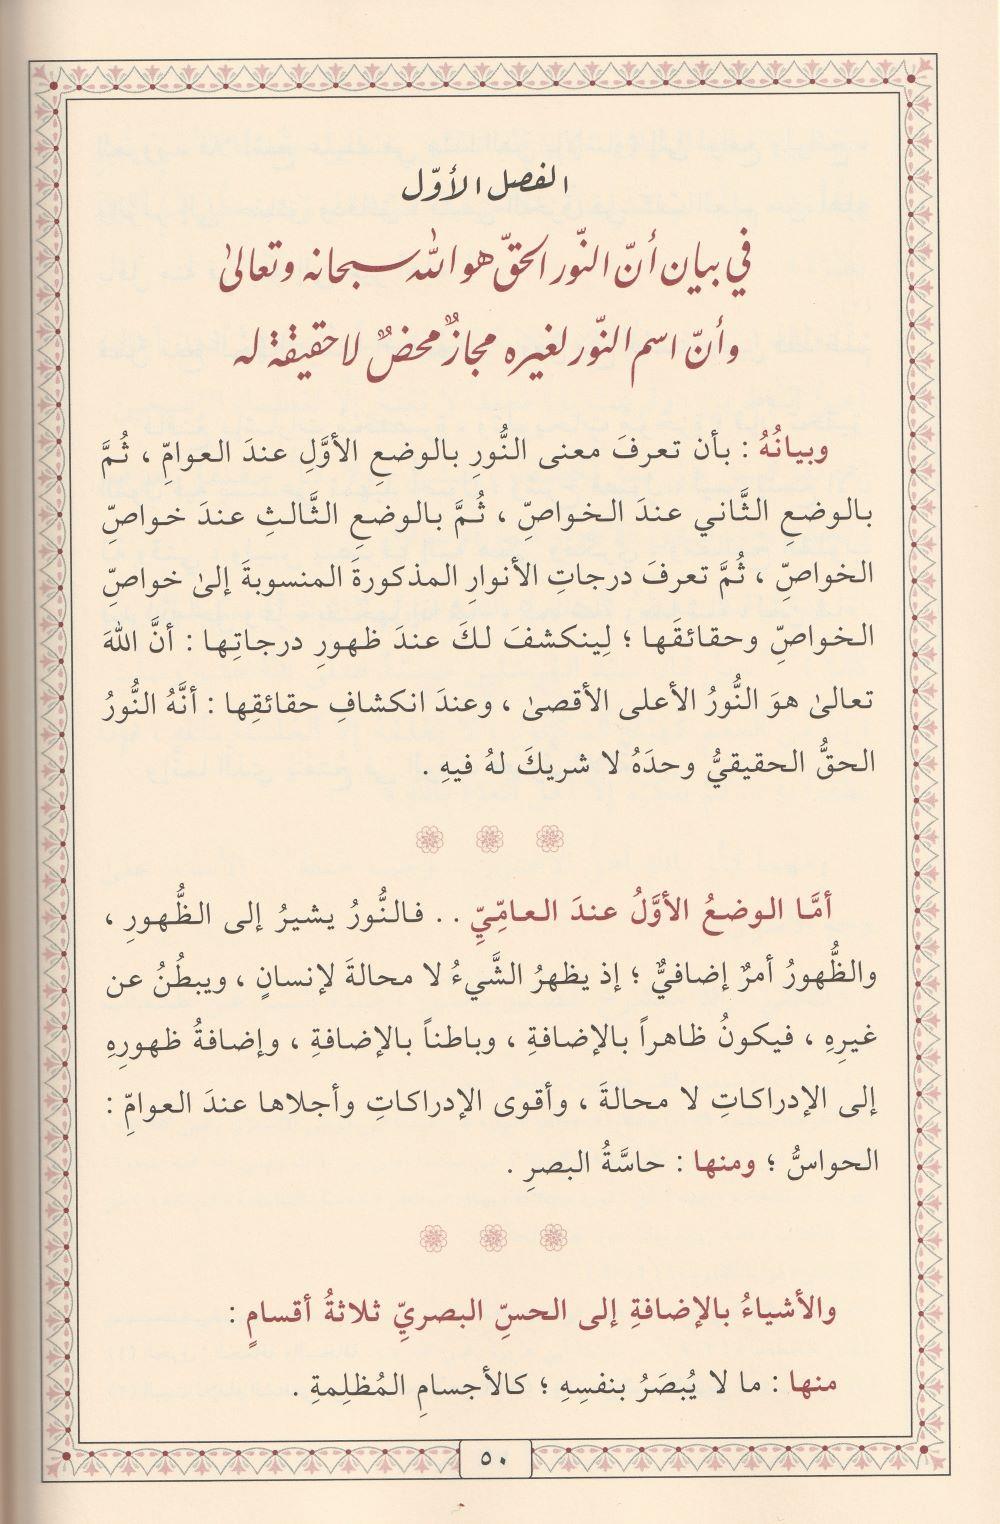 الفصل الأوّل
في بيان أنّ النّور الحقّ هو الله سبحانه وتعالىٰ
وأنّ اسم النّور لغيره مجازٌ محضٌ لا حقيقة له
وبيانُهُ : بأن تعرفَ معنى النُّورِ بالوضعِ الأوَّلِ عندَ العوامِّ ، ثُمَّ
بالوضعِ الثَّاني عندَ الخواصِّ ، ثُمَّ بالوضعِ الثَّالثِ عندَ خواصِّ
الخواصِّ ، ثُمَّ تعرفَ درجاتِ الأنوارِ المذكورةَ المنسوبةَ إلىٰ خواصِّ
الخواصِّ وحقائقَها ؛ لِينكشفَ لكَ عندَ ظهورِ درجاتِها : أنَّ اللهَ
تعالىٰ هوَ النُّورُ الأعلى الأقصىٰ ، وعندَ انكشافِ حقائقِها : أنَّهُ النُّورُ
الحقُّ الحقيقيُّ وحدَهُ لا شريكَ لهُ فيهِ .
أمَّا الوضعُ الأوَّلُ عندَ العامِّيِّ . . فالنُّورُ يشيرُ إلى الظُّهورِ ،
والظُّهورُ أمرٌ إضافيٌّ ؛ إذ يظهرُ الشَّيءُ لا محالةَ لإنسانٍ ، ويبطُنُ عن
غيرِهِ ، فيكونُ ظاهراً بالإضافةِ ، وباطناً بالإضافةِ ، وإضافةُ ظهورِهِ
إلى الإدراكاتِ لا محالةَ ، وأقوى الإدراكاتِ وأجلاها عندَ العوامِّ :
الحواسُّ ؛ ومنها : حاسَّةُ البصرِ .
والأشياءُ بالإضافةِ إلى الحسِّ البصريِّ ثلاثةُ أقسامٍ :
منها : ما لا يُبصَرُ بنفسِهِ ؛ كالأجسامِ المُظلِمةِ .
٥٠